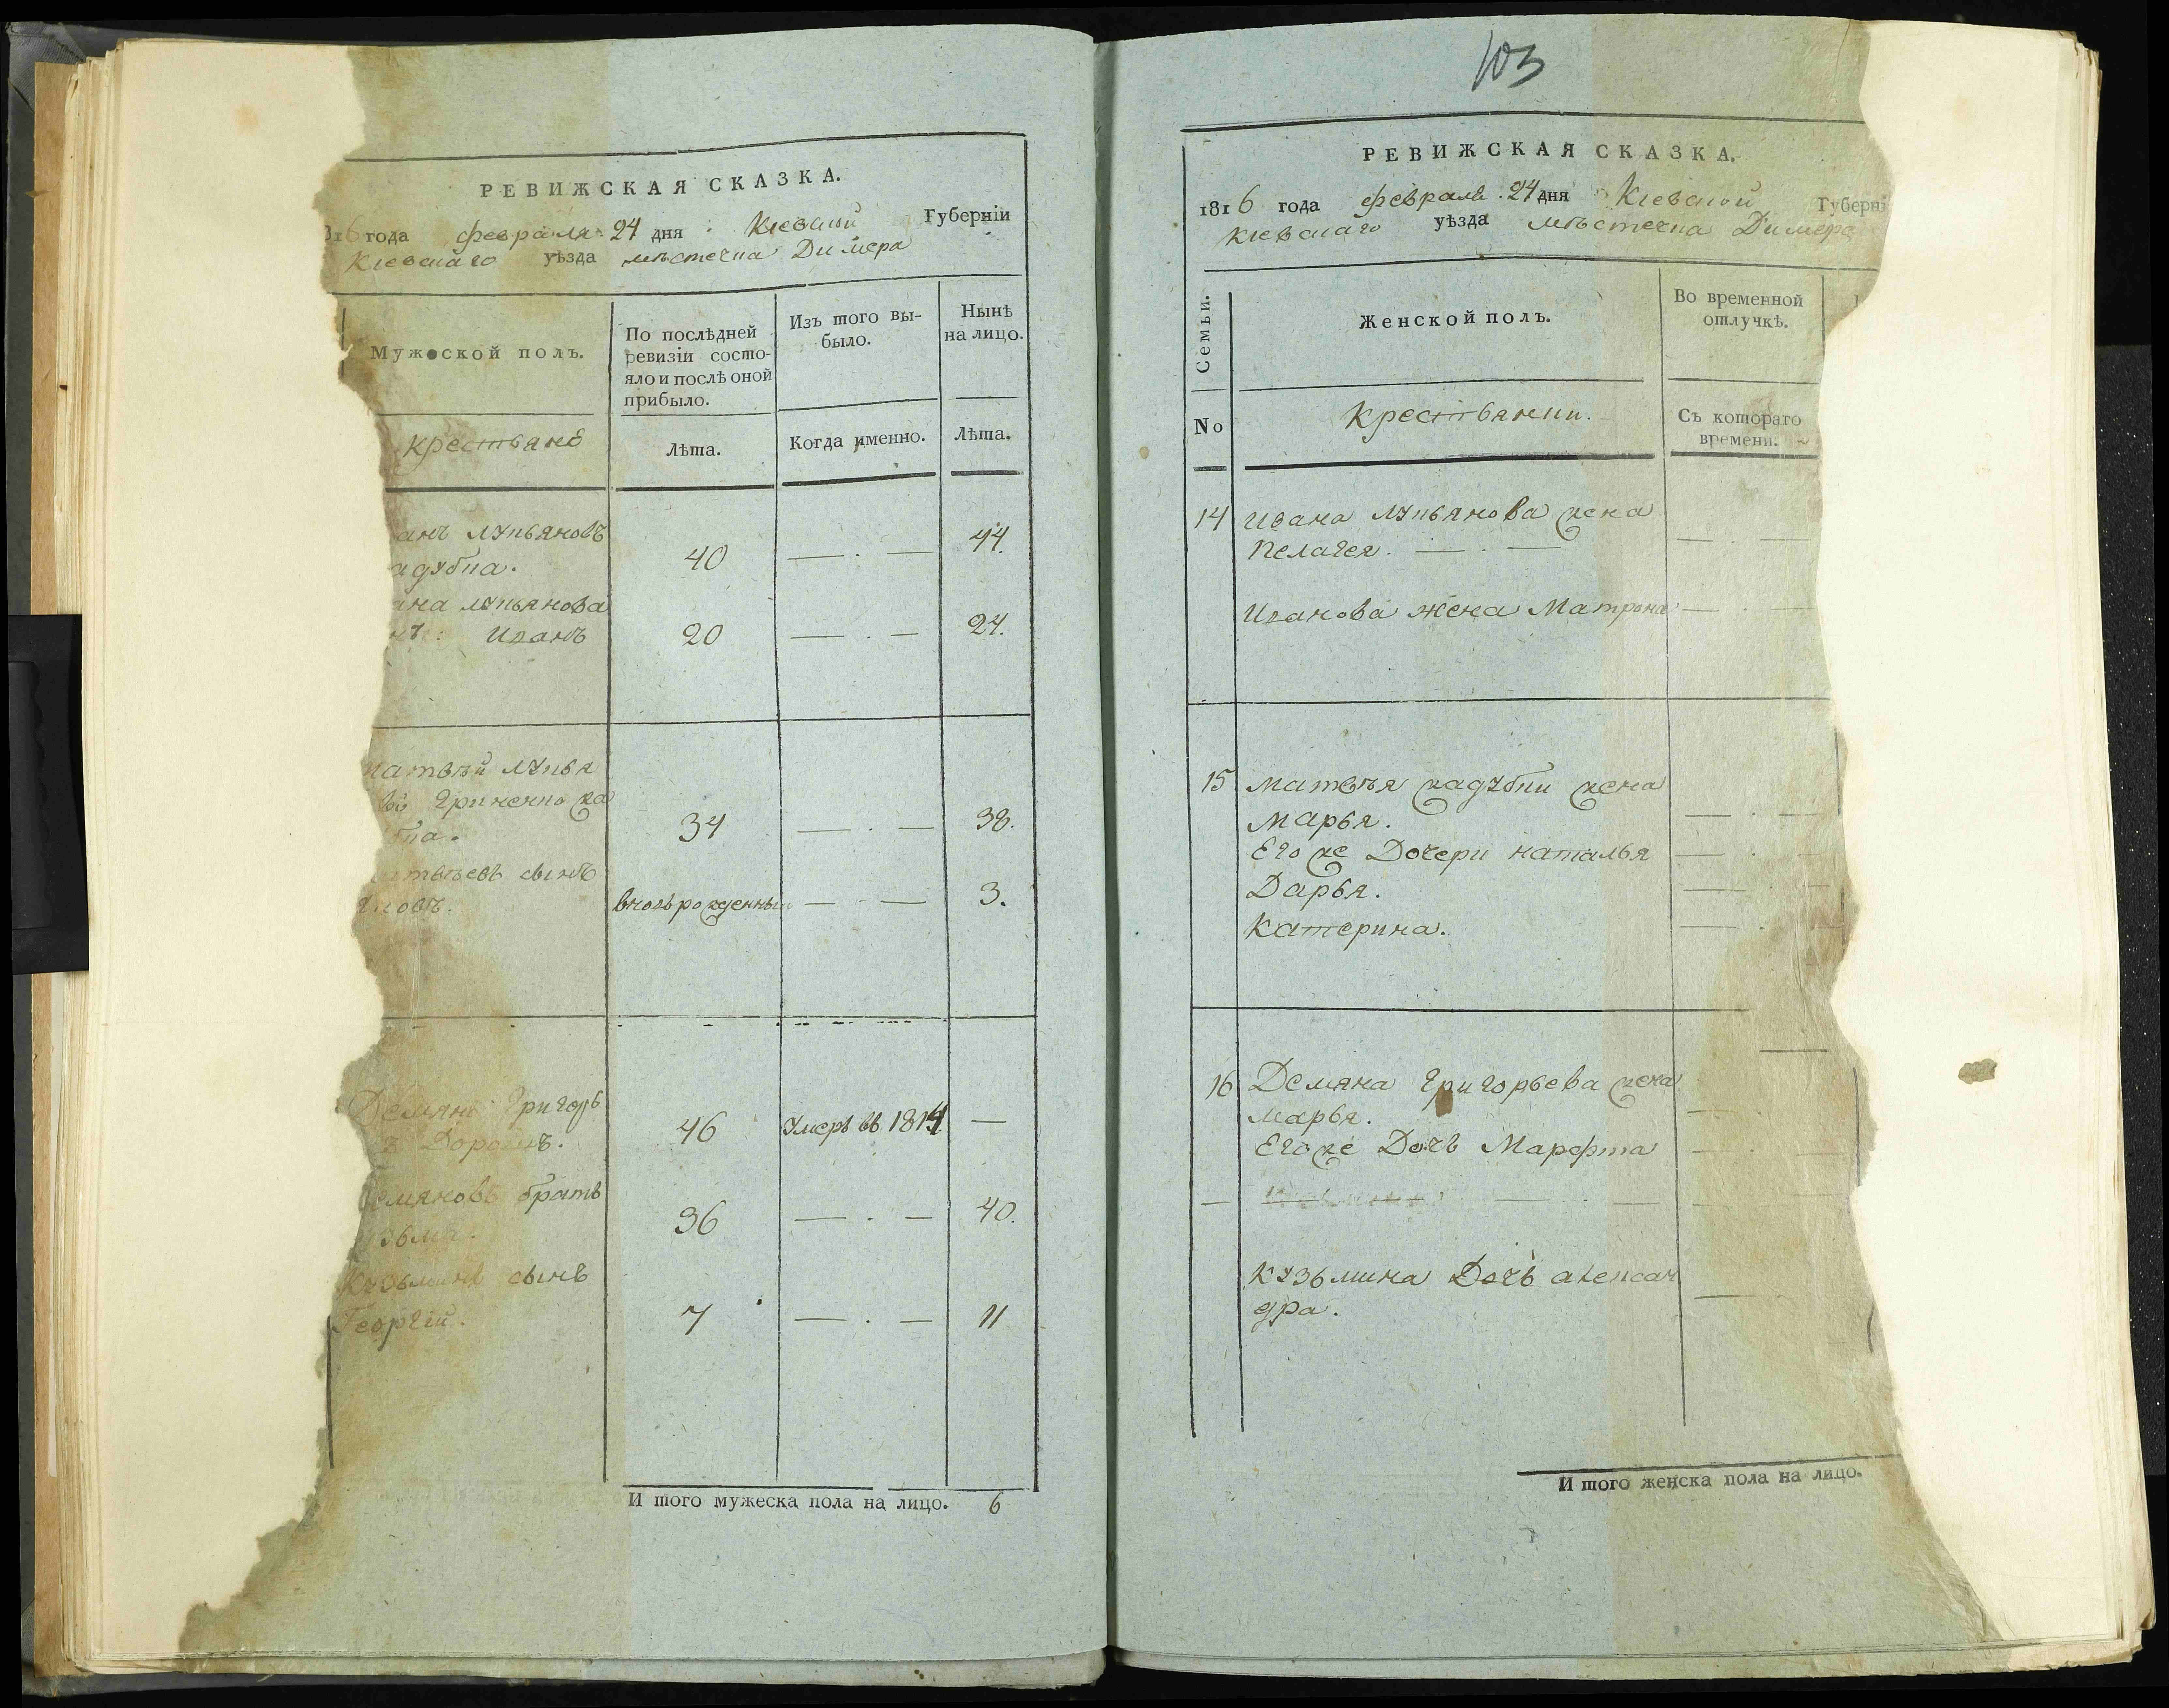 РЕВИЖСКАЯ СКАЗКА.
6 года февраля 24 дня Киевской Губерніи
Киевскаго уѣзда мѣстечка Димера
Мужеской полъ.
По послѣдней ревизіи состо-
яло и послѣ оной
прибыло.
Изъ того вы-
было.
Нынѣ
на лицо.
крестьянѣ
Лѣта.
Когда именно.
Лѣта.
анъ лукьяновъ
адубка.
40 — . — 44.
ана лукьянова
нъ: Иванъ
20 — . — 24.
матвѣй лукья
Гриненко ка
бка.
34 — . — 38.
атвѣевъ сынъ
ковъ.
вновьрожденный — . — 3.
Демянъ Григорь
Дорошъ.
46 Умеръ въ 1814. —
емяновъ братъ
узьма.
36 — . — 40.
Кузьминъ сынъ
Георгій.
7 — . — 11
И того мужеска пола на лицо. 6
103
РЕВИЖСКАЯ СКАЗКА.
1816 года февраля 24 дня Киевской Губерні
Киевскаго уѣзда мѣстечка Димера
Семьи.
Женской полъ.
Во временной
отлучкѣ.
No
крестьянки.
Съ котораго
времени.
14 Ивана лукьянова жена
Пелагея. — . —
Иванова жена Матрона
15 матвѣя кадубки жена
Марья.
Его же Дочери наталья
Дарья.
Катерина.
16 Демяна Григорьева жена
Марья.
Его же Дочь Марфта
Кузьмина Дочь алексан
дра.
И того женска пола на лицо.